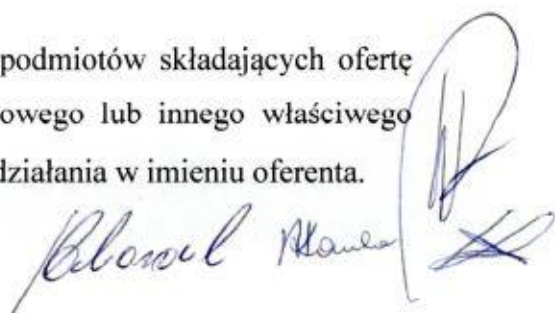 podmiotów składających ofertę
owego lub innego właściwego
działania w imieniu oferenta.